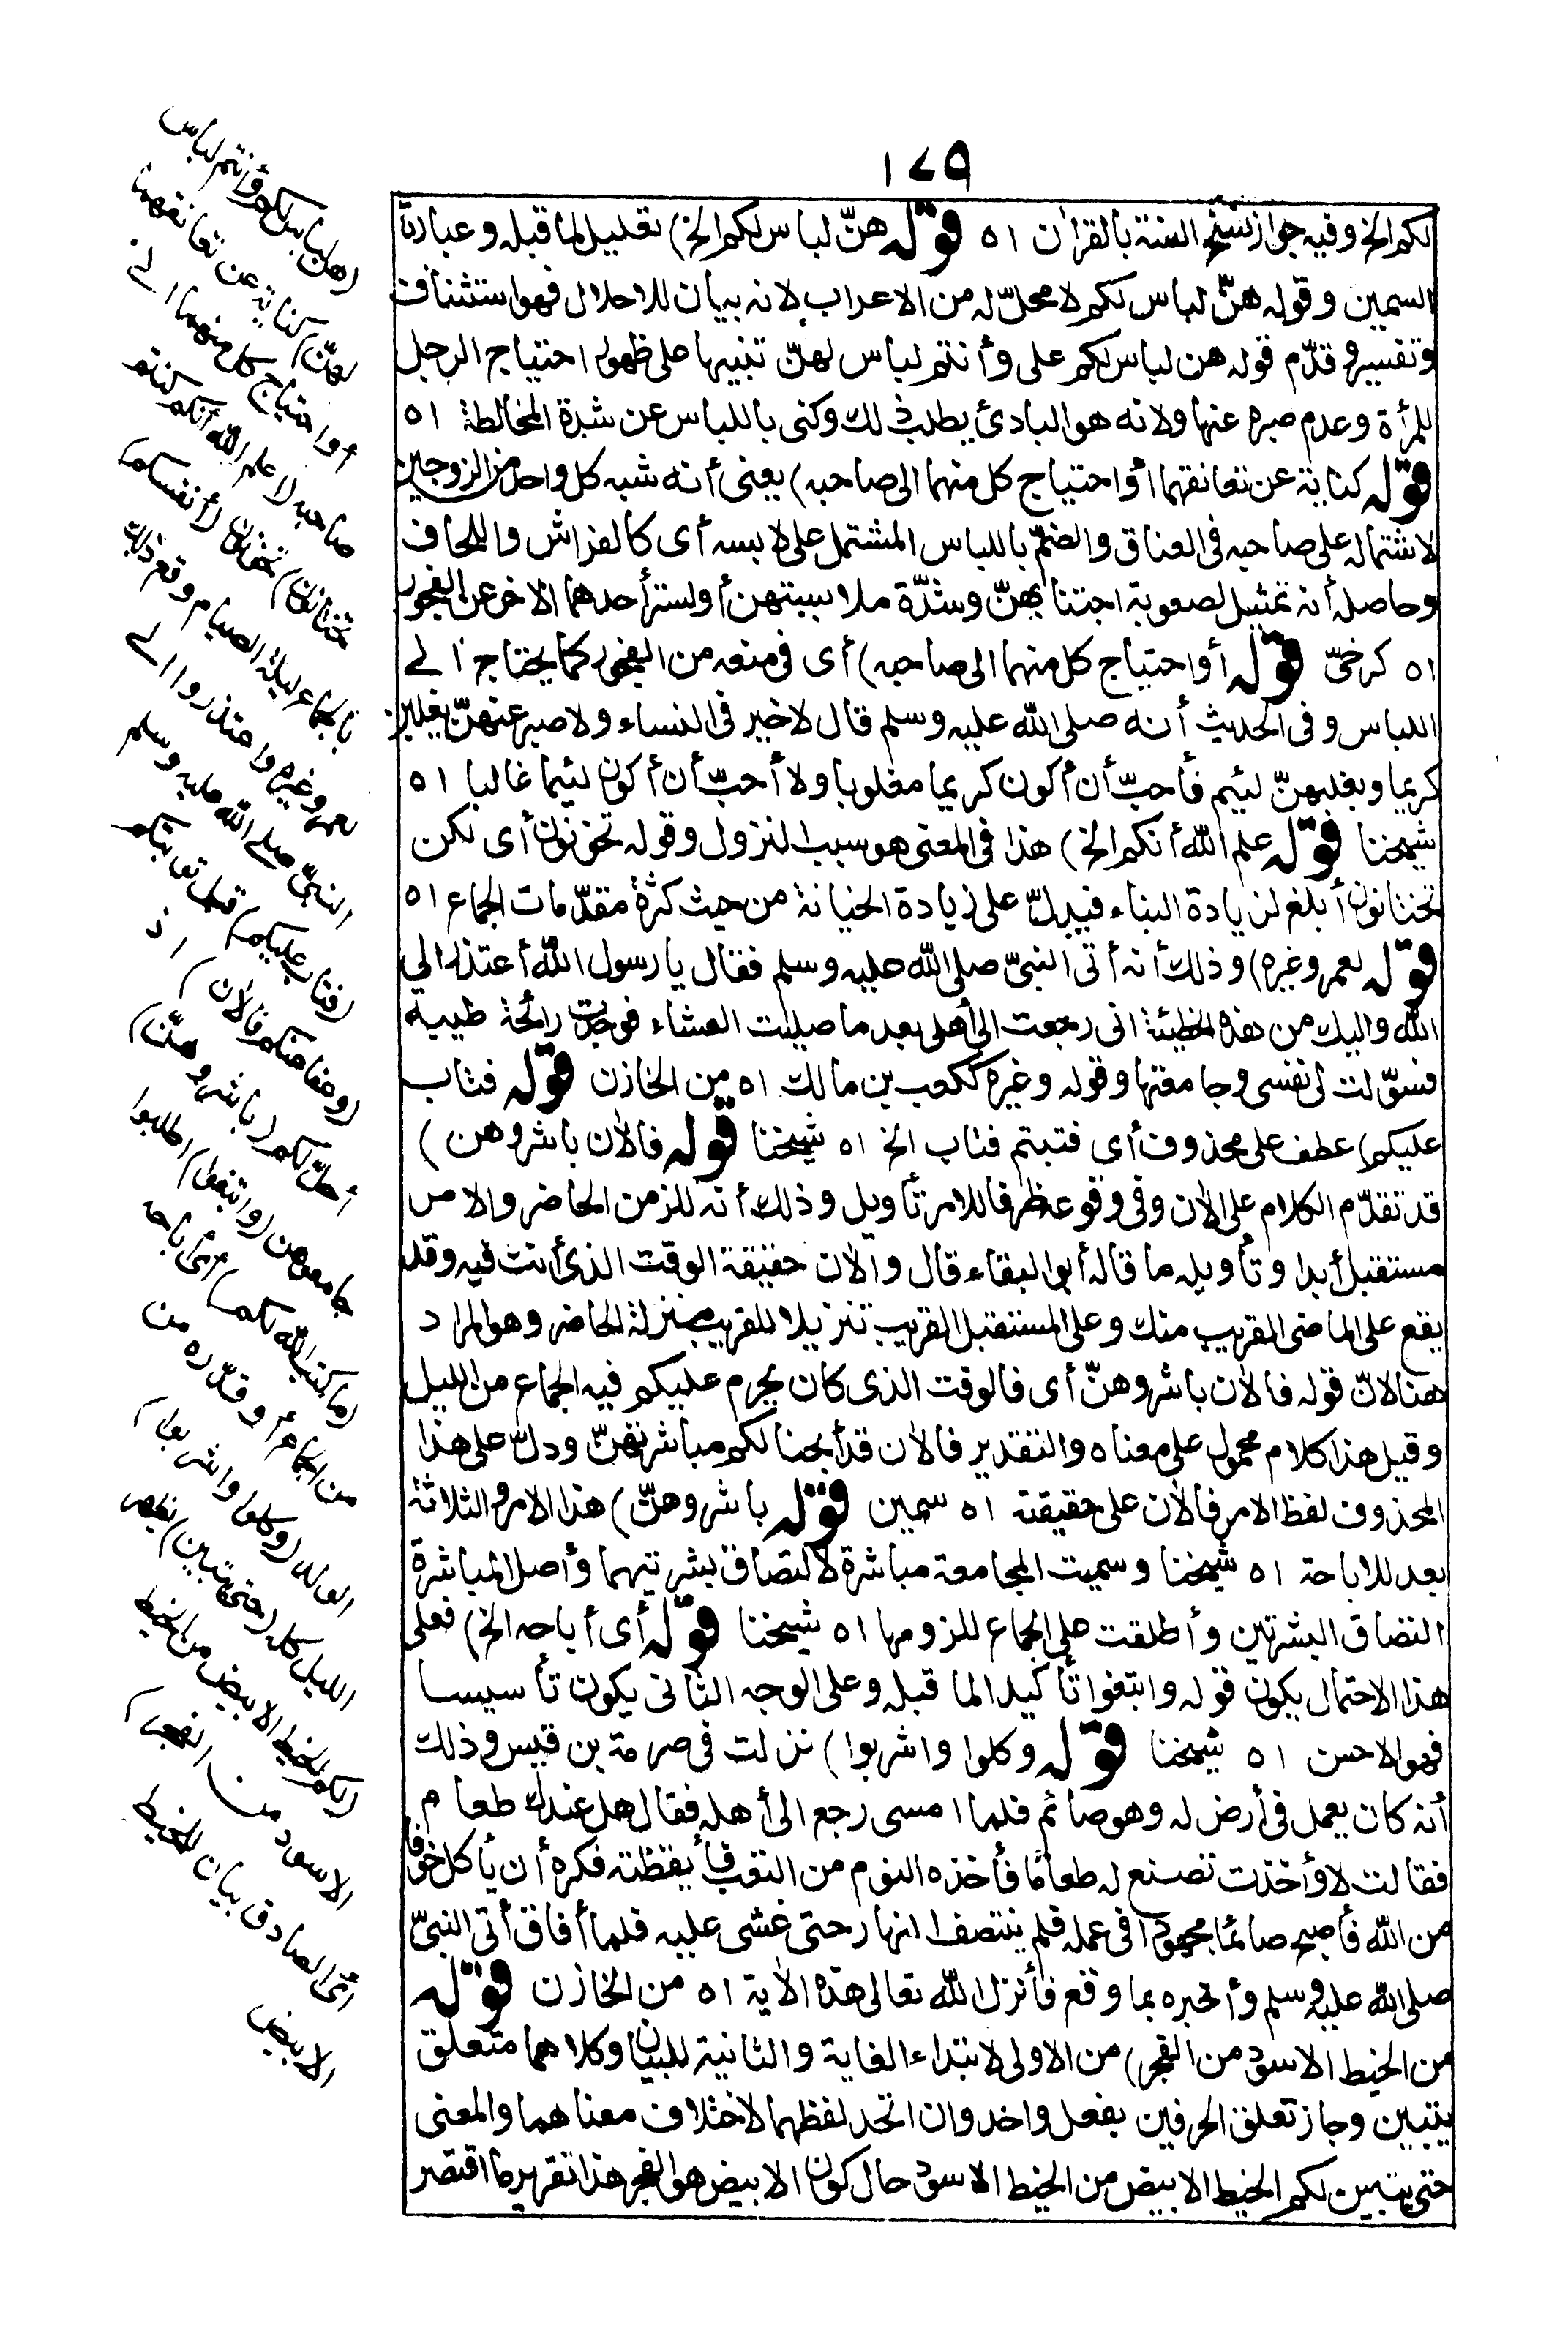 ١٧٩
لكم الخ وفيه جواز نسخ السنة بالقرآن اه قوله هنّ لباس لكم الخ) تعليل لما قبله وعبارة
السمين وقوله هنّ لباس لكم لا محلّ له من الاعراب لانه بيان للاحلال فهو استئناف
وتفسير وقدّم قوله هن لباس لكم على وأنتم لباس لهنّ تنبيها على ظهور احتياج الرجل
للمرأة وعدم صبره عنها ولانه هو البادئ بطلب ذلك وكنى باللباس عن شدة المخالطة اه
قوله كناية عن تعانقهما أو احتياج كل منهما الى صاحبه) يعنى أنه شبه كل واحد من الزوجين
لاشتماله على صاحبه فى العناق والضمّ باللباس المشتمل على لابسه أى كالفراش واللحاف
وحاصله أنه تمثيل لصعوبة اجتنابهنّ وشدّة ملابستهن أو لستر أحدهما الآخر عن الفجور
اه كرخىّ قوله أو احتياج كل منهما الى صاحبه) أى فى منعه من الفجور كما يحتاج الے
اللباس وفى الحديث أنه صلى الله عليه وسلم قال لا خير فى النساء ولا صبر عنهنّ يغلبن
كريما ويغلبهنّ لئيم فأحبّ أن أكون كريما مغلوبا ولا أحبّ أن أكون لئيما غالبا اه
شيخنا قوله علم الله أنكم الخ) هذا فى المعنى هو سبب النزول وقوله تخونون أى لكن
تختانون أبلغ لزيادة البناء فيدلّ على زيادة الخيانة من حيث كثرة مقدّمات الجماع اه
قوله لعمر وغيره) وذلك أنه أتى النبىّ صلى الله عليه وسلم فقال يا رسول الله أعتذر الى
الله واليك من هذه الخطيئة انى رجعت الى أهلى بعد ما صليت العشاء فوجدت رائحة طيبة
فسوّلت لى نفسى وجامعتها وقوله وغيره ككعب بن مالك اه من الخازن قوله فتاب
عليكم) عطف على محذوف أى فتبتم فتاب الخ اه شيخنا قوله فالآن باشروهن)
قد تقدّم الكلام على الآن وفى وقوعه ظرفا للامر تأويل وذلك أنه للزمن الحاضر والامر
مستقبل أبدا وتأويله ما قاله أبو البقاء قال والآن حقيقة الوقت الذى أنت فيه وقد
يقع على الماضى القريب منك وعلى المستقبل القريب تنزيلا للقريب منزلة الحاضر وهو المراد
هنا لانّ قوله فالآن باشروهنّ أى فالوقت الذى كان يحرم عليكم فيه الجماع من الليل
وقيل هذا كلام محمول على معناه والتقدير فالآن قد أبحنا لكم مباشرتهنّ ودلّ على هذا
المحذوف لفظ الامر فالآن على حقيقته اه سمين قوله باشروهنّ) هذا الامر والثلاثة
بعد للاباحة اه شيخنا وسميت المجامعة مباشرة لالتصاق بشرتيهما وأصل المباشرة
التصاق البشرتين وأطلقت على الجماع للزومها اه شيخنا قوله أى أباحه الخ) فعلى
هذا الاحتمال يكون قوله وابتغوا تأكيدا لما قبله وعلى الوجه الثانى يكون تأسيسا
فهو الاحسن اه شيخنا قوله وكلوا واشربوا) نزلت فى صرمة بن قيس وذلك
أنه كان يعمل فى أرض له وهو صائم فلما امسى رجع الى أهله فقال هل عندك طعام
فقالت لا وأخذت تصنع له طعاما فأخذه النوم من التعب فأيقظته فكره أن يأكل خوفا
من الله فأصبح صائما مجهودا فى عمله فلم ينتصف النهار حتى غشى عليه فلما أفاق أتى النبىّ
صلى الله عليه وسلم وأخبره بما وقع فأنزل الله تعالى هذه الآية اه من الخازن قوله
من الخيط الاسود من الفجر) من الاولى لابتداء الغاية والثانية للبيان وكلاهما متعلق
يتبين وجاز تعلق الحرفين بفعل واحد وان اتحد لفظهما لاختلاف معناهما والمعنى
حتى يتبين لكم الخيط الابيض من الخيط الاسود حال كون الابيض هو الفجر هذا تقرير ما اقتصر
(هن لباس لكم وأنتم لباس
لهنّ) كناية عن تعانقهما
أو احتياج كل منهما الے
صاحبه (علم الله أنكم كنتم
تختانون) تخونون (أنفسكم)
بالجماع ليلة الصيام وقع ذلك
لعمر وغيره واعتذروا الے
النبىّ صلى الله عليه وسلم
(فتاب عليكم) قبل توبتكم
(وعفا عنكم فالآن) اذ
أحلّ لكم (باشروهنّ)
جامعوهن (وابتغوا) اطلبوا
(ما كتب الله لكم) أى أباحه
من الجماع أو قدّره من
الولد (وكلوا واشربوا)
الليل كله (حتى يتبين) يظهر
(لكم الخيط الابيض من الخيط
الاسود من الفجر)
أى الصادق بيان للخيط
الابيض